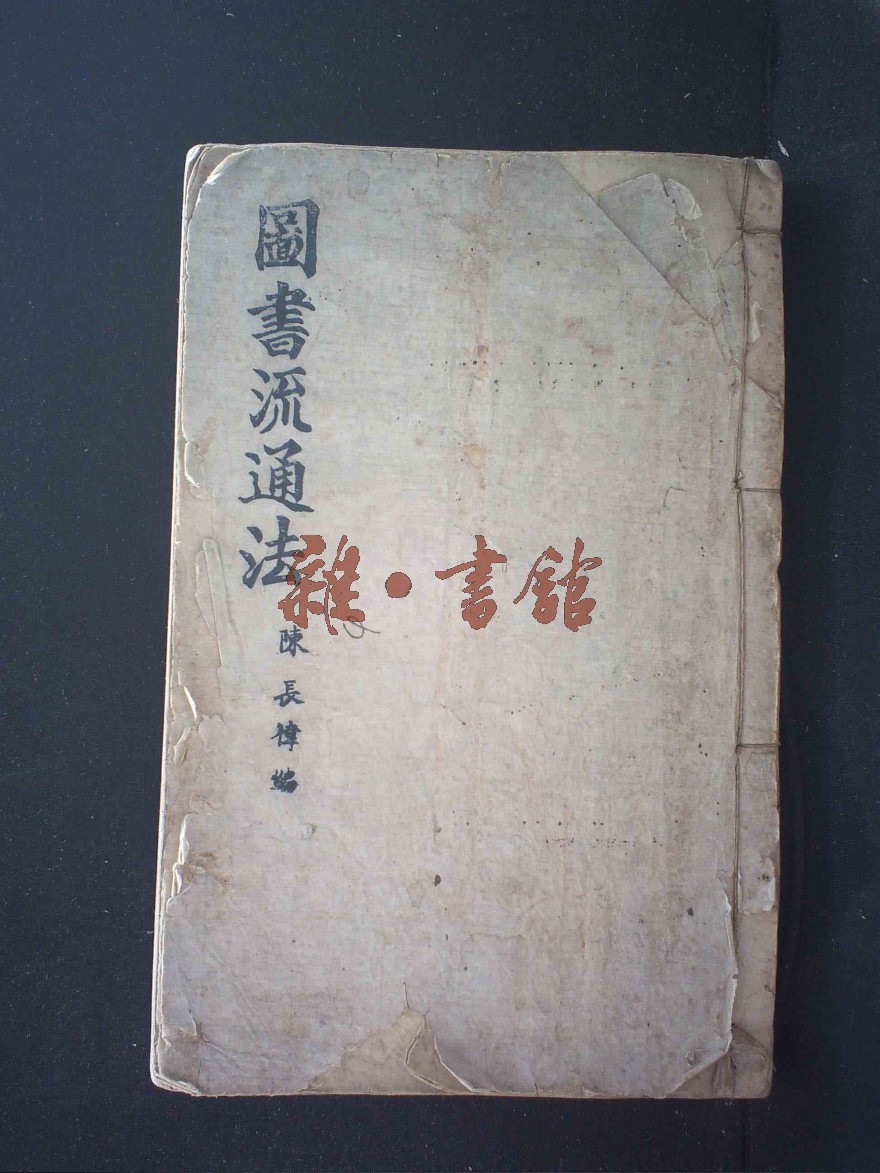 圖書流通法
陳長偉編
雜·書館